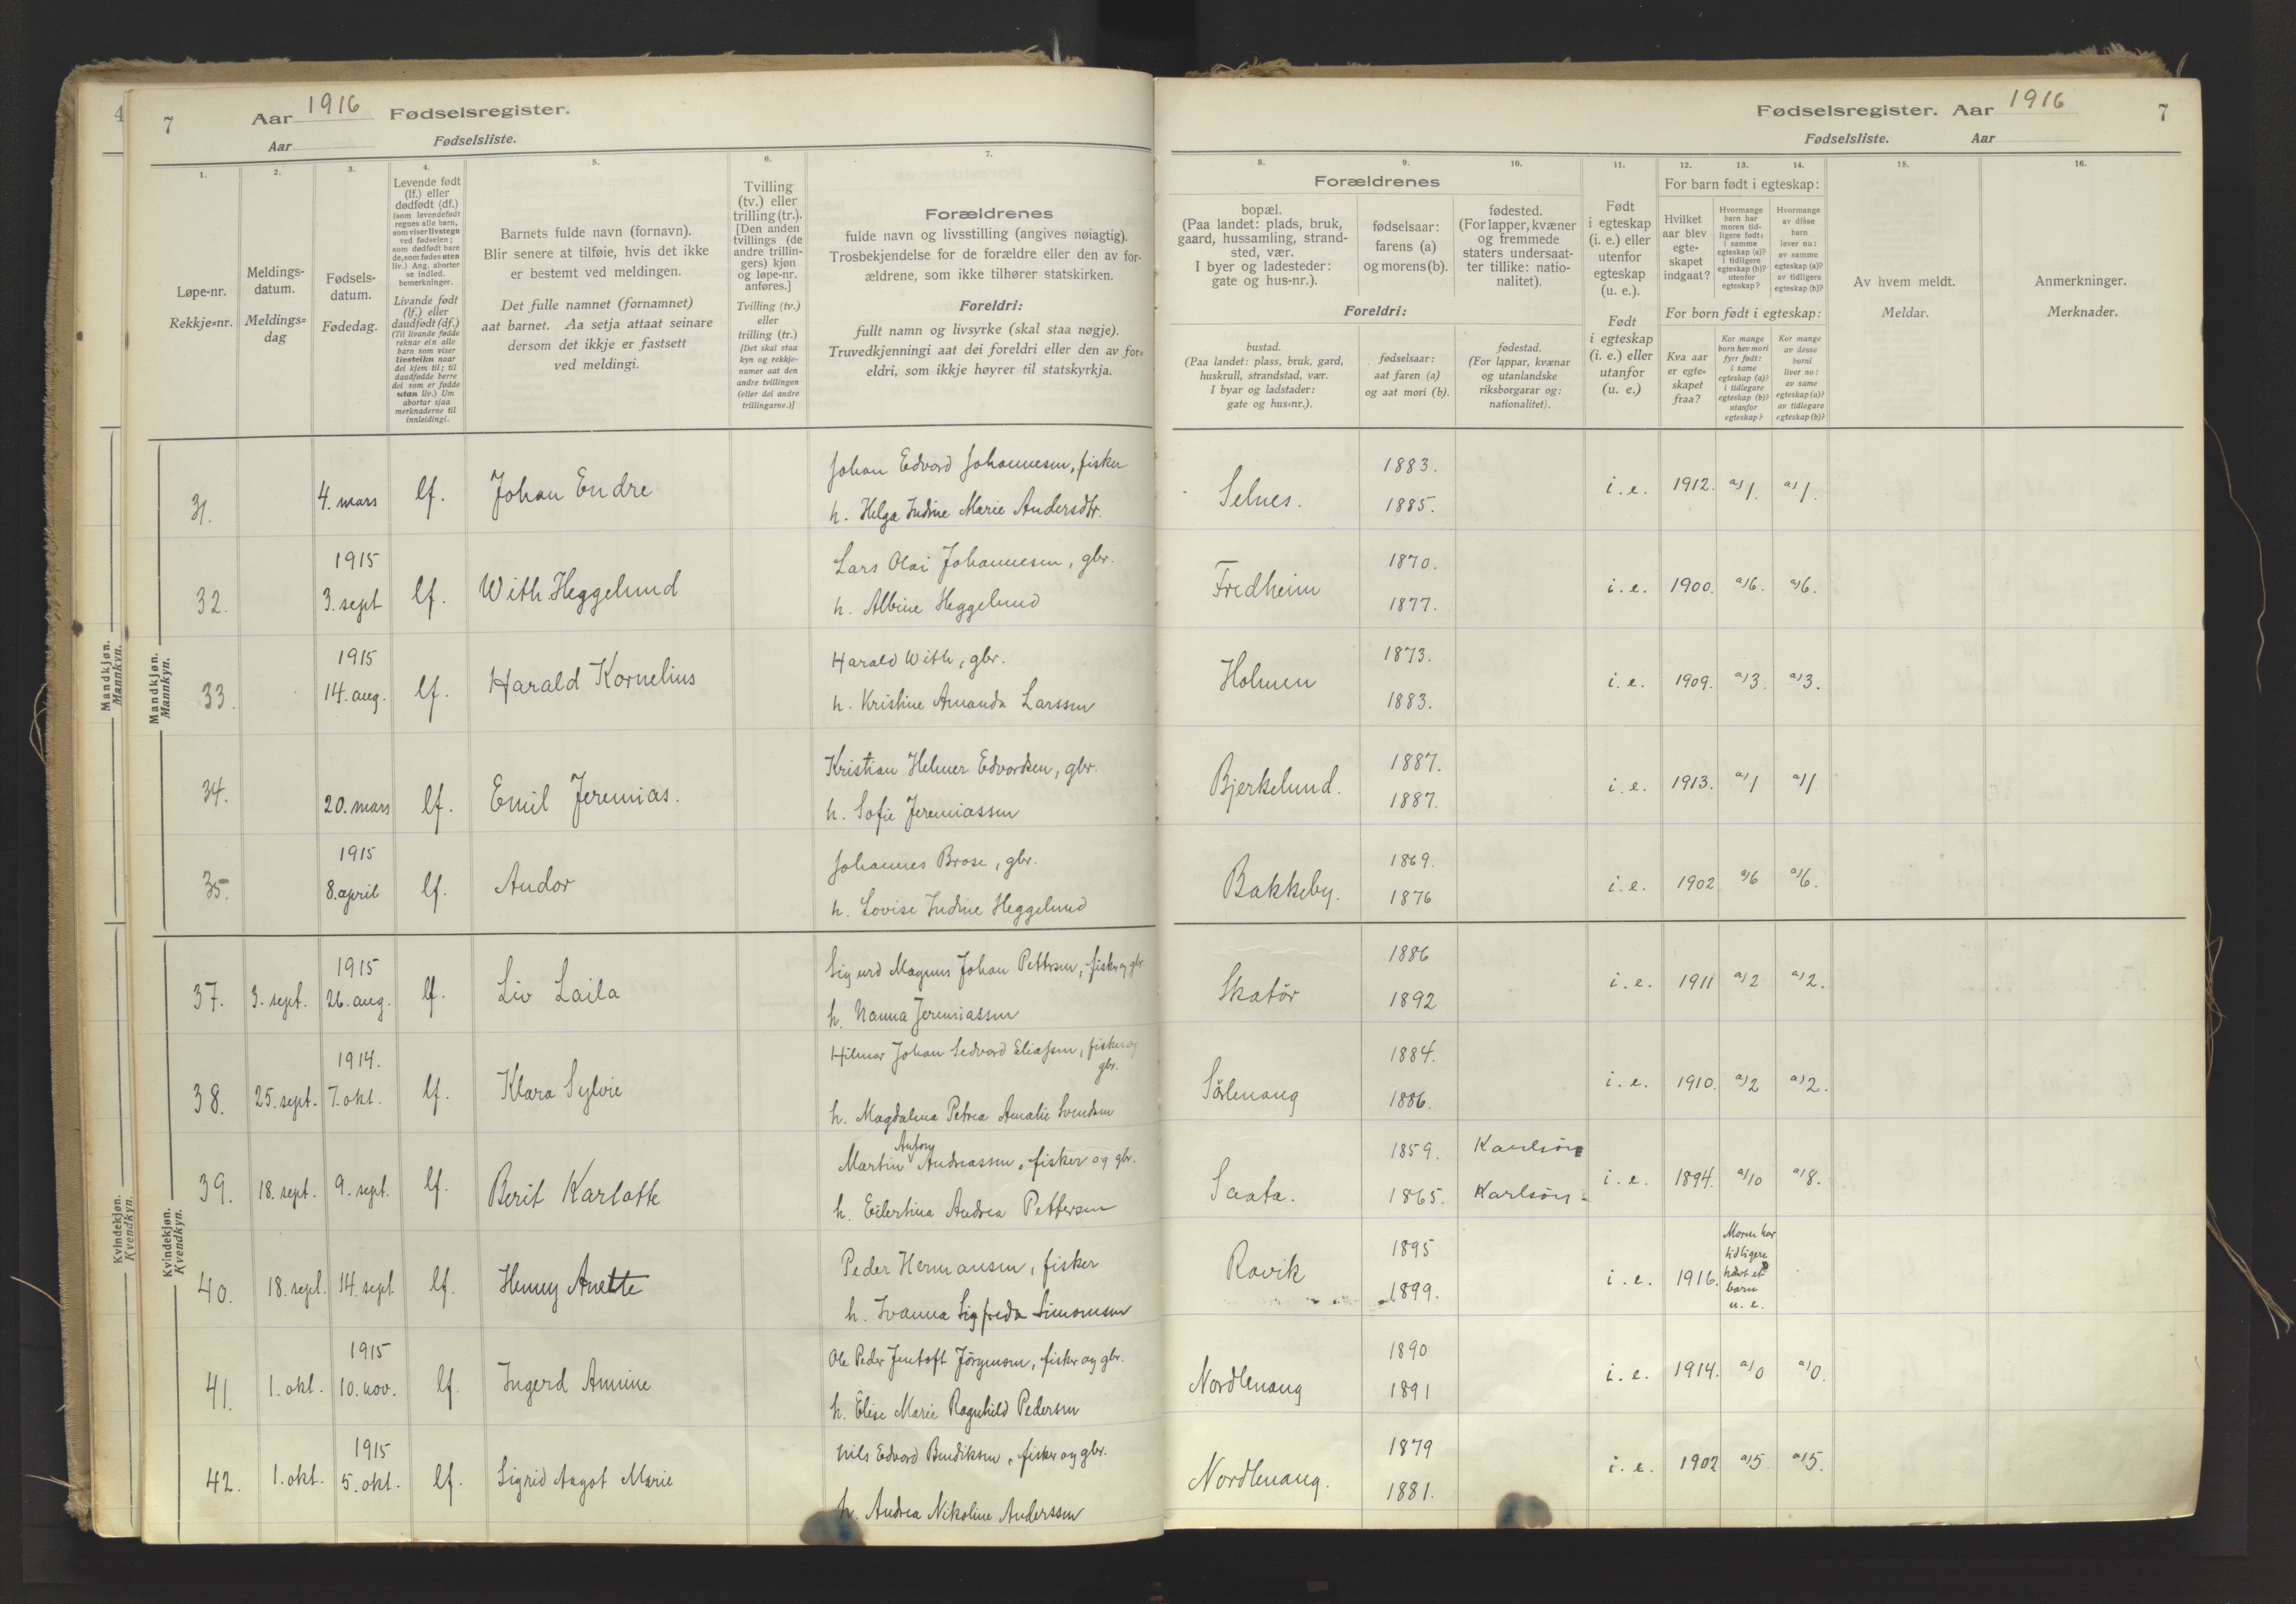 7 Aar 1916 Fødselsregister.
Aar Fødselsliste.
Fødselsregister. Aar 1916 7
Fødselsliste. Aar
1.
Løpe-nr.
Rekkje=nr.
2.
Meldings-
datum.
Meldings=
dag
3.
Fødsels-
datum.
Fødedag.
4.
Levende født
(lf.) eller
dødfødt (df.)
(som levendefødt
regnes alle barn,
som viser livstegn
ved fødselen;
som dødfødt bare
de, som fødes uten
liv.) Ang. aborter
se indled.
bemerkninger.
Livande født
(lf.) eller
daudfødt (df.)
(Til livande fødde
reknar ein alle
barn som viser
livsteikn naar
dei kjem til; til
daudfødde berre
dei som er fødde
utan liv.) Um
abortar sjaa
merknaderne til
innleidingi.
5.
Barnets fulde navn (fornavn).
Blir senere at tilføie, hvis det ikke
er bestemt ved meldingen.
Det fulle namnet (fornamnet)
aat barnet. Aa setja attaat seinare
dersom det ikkje er fastsett
ved meldingi.
6.
Tvilling
(tv.) eller
trilling (tr.).
[Den anden
tvillings (de
andre trillin-
gers) kjøn
og løpe-nr.
anføres.]
Tvilling (tv.)
eller
trilling (tr.)
[Det skal staa
kyn og rekkje-
numer aat den
andre tvillingen
(eller dei andre
trillingarne.)]
7.
Forældrenes
fulde navn og livsstilling (angives nøiagtig).
Trosbekjendelse for de forældre eller den av for-
ældrene, som ikke tilhører statskirken.
Foreldri:
fullt namn og livsyrke (skal staa nøgje).
Truvedkjenningi aat dei foreldri eller den av for=
eldri, som ikkje høyrer til statskyrkja.
8. 9. 10.
Forældrenes
bopæl.
(Paa landet: plads, bruk,
gaard, hussamling, strand-
sted, vær.
I byer og ladesteder:
gate og hus-nr.).
fødselsaar:
farens (a)
og morens (b).
fødested.
(For lapper, kvæner
og fremmede
staters undersaat-
ter tillike: natio-
nalitet).
Foreldri:
bustad.
(Paa landet: plass, bruk, gard,
huskrull, strandstad, vær.
I byar og ladstader:
gate og hus=nr.).
fødselsaar:
aat faren (a)
og aat mori (b).
fødestad.
(For lappar, kvænar
og utanlandske
riksborgarar og:
nationalitet).
11.
Født
i egteskap
(i. e.) eller
utenfor
egteskap
(u. e.).
Født
i egteskap
(i. e.) eller
utanfor
(u. e.)
12. 13. 14.
For barn født i egteskap:
Hvilket
aar blev
egte-
skapet
indgaat?
Hvormange
barn har
moren tid-
ligere født:
i samme
egteskap (a)?
i tidligere
egteskap (b)?
utenfor
egteskap?
Hvormange
av disse
barn
lever nu:
av samme
egteskap (a)?
av tidligere
egteskap (b)?
For born født i egteskap:
Kva aar
er egte=
skapet
fraa?
Kor mange
born hev mori
fyrr født:
i same
egteskap (a)?
i tidlegare
egteskap (b)?
utanfor
egteskap?
Kor mange
av desse
borni
liver no:
av same
egteskap (a)?
av tidlegare
egteskap (b)?
15.
Av hvem meldt.
Meldar.
16.
Anmerkninger.
Merknader.
Mandkjøn.
Mannkyn.
Mandkjøn.
Mannkyn.
31. 4. mars lf. Johan Endre Johan Edvard Johannesen, fisker
h. Helga Indine Marie Andersdtr. Selnes. 1883.
1885. i. e. 1912. a)1. a)1.
32. 1915
3. sept lf. With Heggelund Lars Olai Johannesen, gbr.
h. Albine Heggelund Fredheim 1870.
1877. i. e. 1900. a)6. a)6.
33. 1915
14. aug. lf. Harald Kornelius Harald With, gbr.
h. Kristine Amanda Larssen Holmen 1873.
1883. i. e. 1909. a)3. a)3.
34. 20. mars lf. Emil Jeremias. Kristian Helmer Edvardsen, gbr.
h. Sofie Jeremiassen Bjerkelund. 1887.
1887. i. e. 1913. a)1 a)1
35. 1915
8. april lf. Andor Johannes Brose, gbr.
h. Lovise Indine Heggelund Bakkeby. 1869.
1876 i. e. 1902 a)6 a)6.
Kvindekjøn.
Kvendkyn.
Kvindekjøn.
Kvendkyn.
37. 3. sept. 1915
26. aug. lf. Liv Laila Sigurd Magnus Johan Pettersen, fisker og gbr
h. Nanna Jeremiassen Skatør 1886
1892 i. e. 1911 a)2 a)2.
38. 25. sept. 1914.
7. okt. lf. Klara Sylvie Hilmar Johan Sedvard Eliassen, fisker og
gbr.
h. Magdalena Petrea Amalie Svendsen Sörlenang 1884.
1886. i. e. 1910. a)2 a)2.
39. 18. sept. 9. sept. lf. Berit Karlotte Martin Antony Andreassen, fisker og gbr.
h. Eilertina Andrea Pettersen Saata. 1859.
1865. Karlsöy
Karlsöy i. e. 1894. a)10 a)8.
40. 18. sept. 14. sept. lf. Henny Anette Peder Hermansen, fisker
h. Ivanna Sigfreda Simonsen Ravik 1895
1899. i. e. 1916. Moren har
tidligere
havt et
barn
u. e.
41. 1. okt. 1915
10. nov. lf. Ingerd Annine Ole Peder Jentoft Jörgensen, fisker og gbr.
h. Elise Marie Ragnhild Pedersen Nordlenang 1890
1891 i. e. 1914. a)0 a)0.
42. 1. okt. 1915
5. okt. lf. Sigrid Aagot Marie Nils Edvard Bendiksen, fisker og gbr.
h. Andrea Nikoline Anderssen Nordlenang. 1879
1881. i. e. 1902 a)5. a)5.